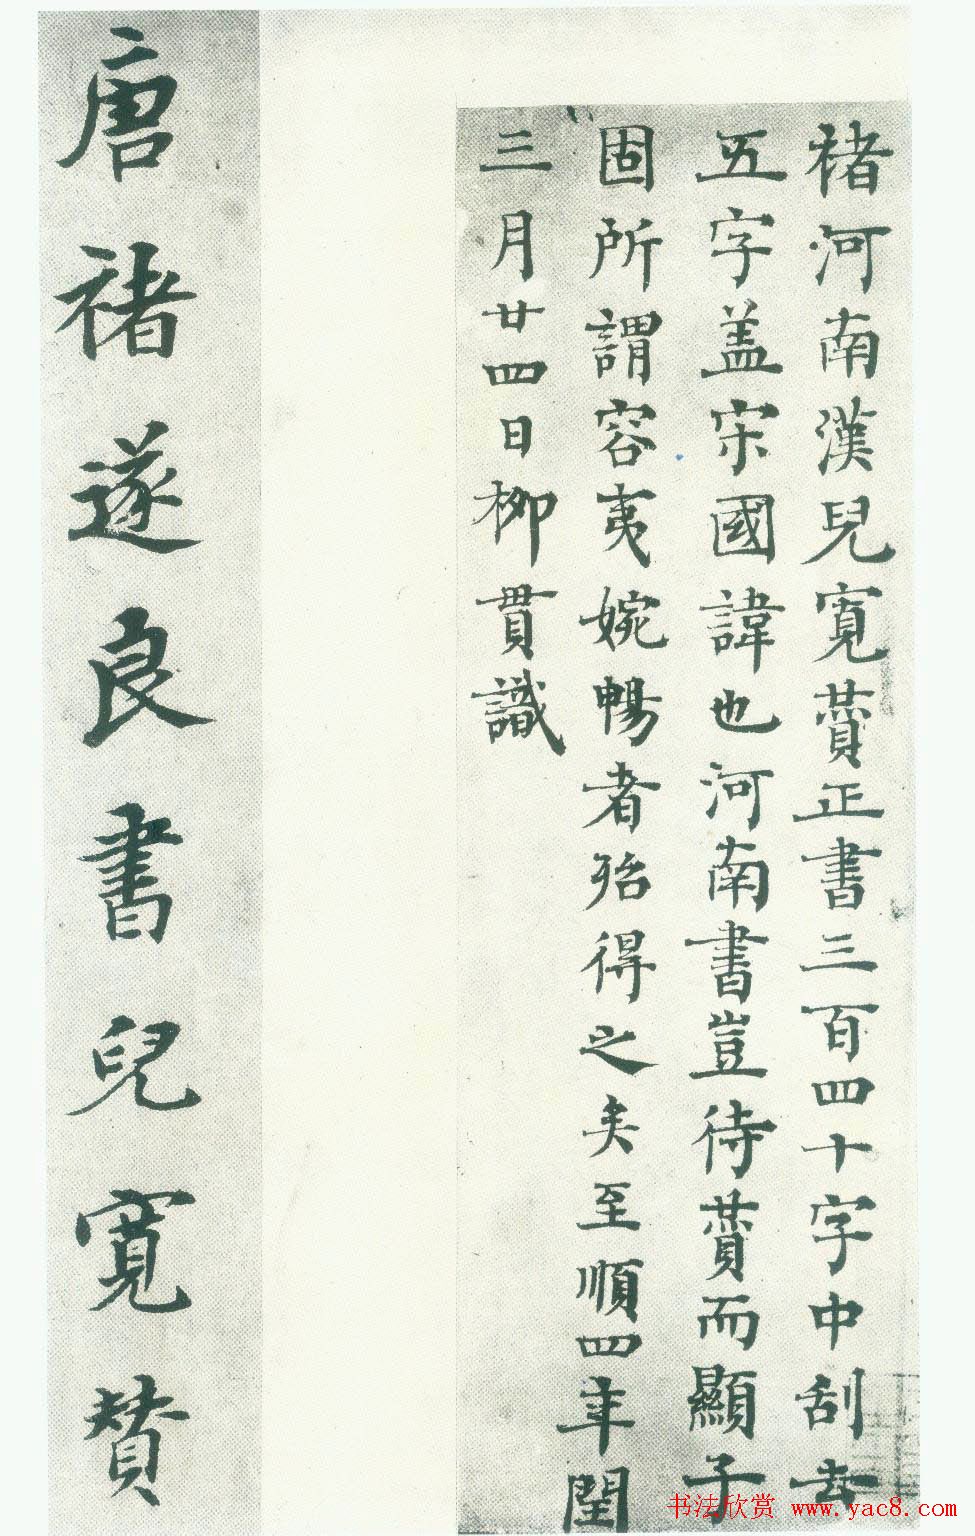 褚河南漢兒寬賛正書三百四十字中刮去
五字盖宋國諱也河南書豈待賛而顯子
固所謂容夷婉暢者殆得之矣至順四年閏
三月廿四日柳貫識
唐褚遂良書兒寬贊
书法欣赏 www.yac8.com